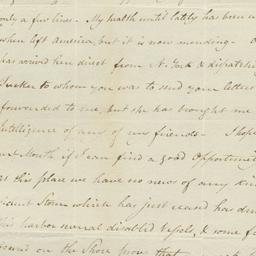 only a few lines. My health until lately has been
when left America, but it is now mending.
has arrived here direct from N. York & dispatche
Tucker to whom you was to send your letters
forwarded to me, but she has brought me
Intelligence of any of our friends - I hope
next Month if I can find a good Opportunit
at this place we have no news of any
violent Storm which has just ceased has
this harbor several disabled Vessels, & some
on the Shore from that